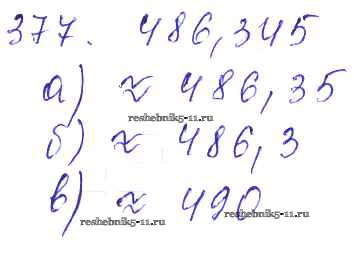 377. 486,345
а) ≈ 486,35
reshebnik5-11.ru
б) ≈ 486,3
в) ≈ 490
reshebnik5-11.ru reshebnik5-11.ru